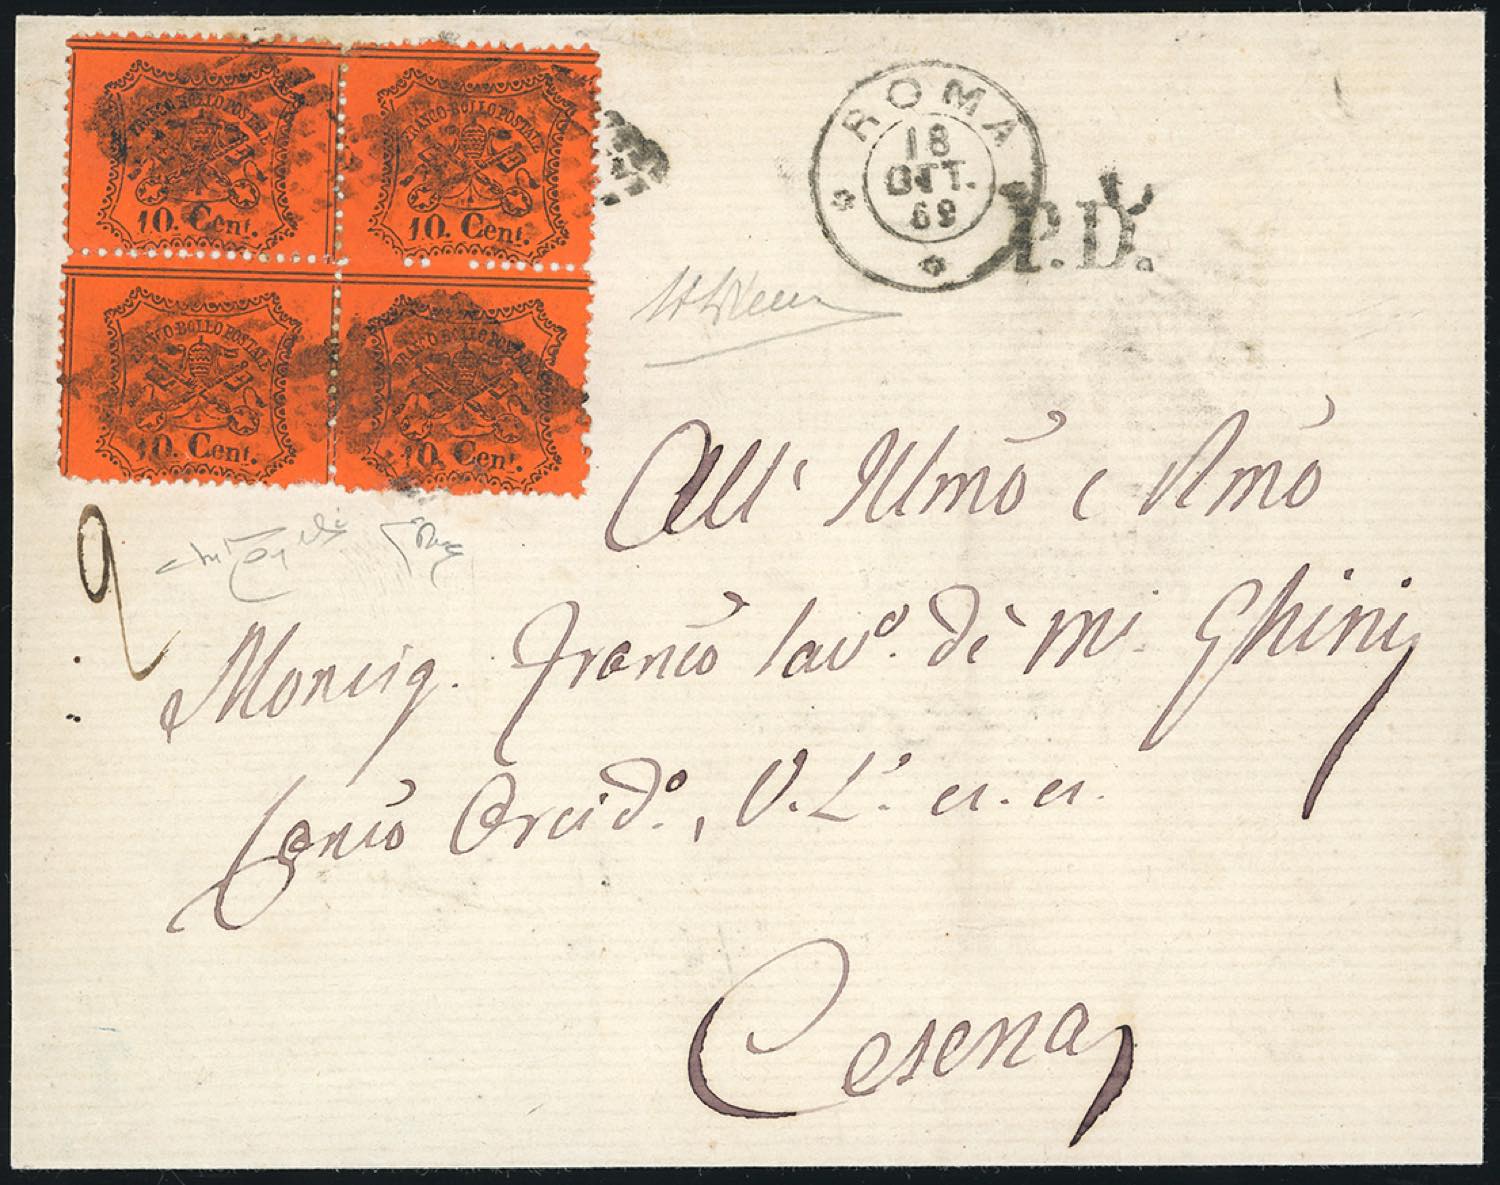 FRANCO-BOLLO POSTALE
10. Cent.
FRANCO-BOLLO POSTALE
10. Cent.
FRANCO-BOLLO POSTALE
10. Cent.
FRANCO-BOLLO POSTALE
10. Cent.
ROMA
18
OTT.
69
P.D.
2
All' Illmo e Rmo
Monsig. Franco Cav.o di Mi Ghini
Canco Arcid.o, V. L. es. es.
Cesena